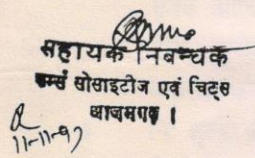 सहायक निबन्धक
फर्म्स सोसाइटीज एवं चिट्स
आजमगढ़ ।
11-11-97